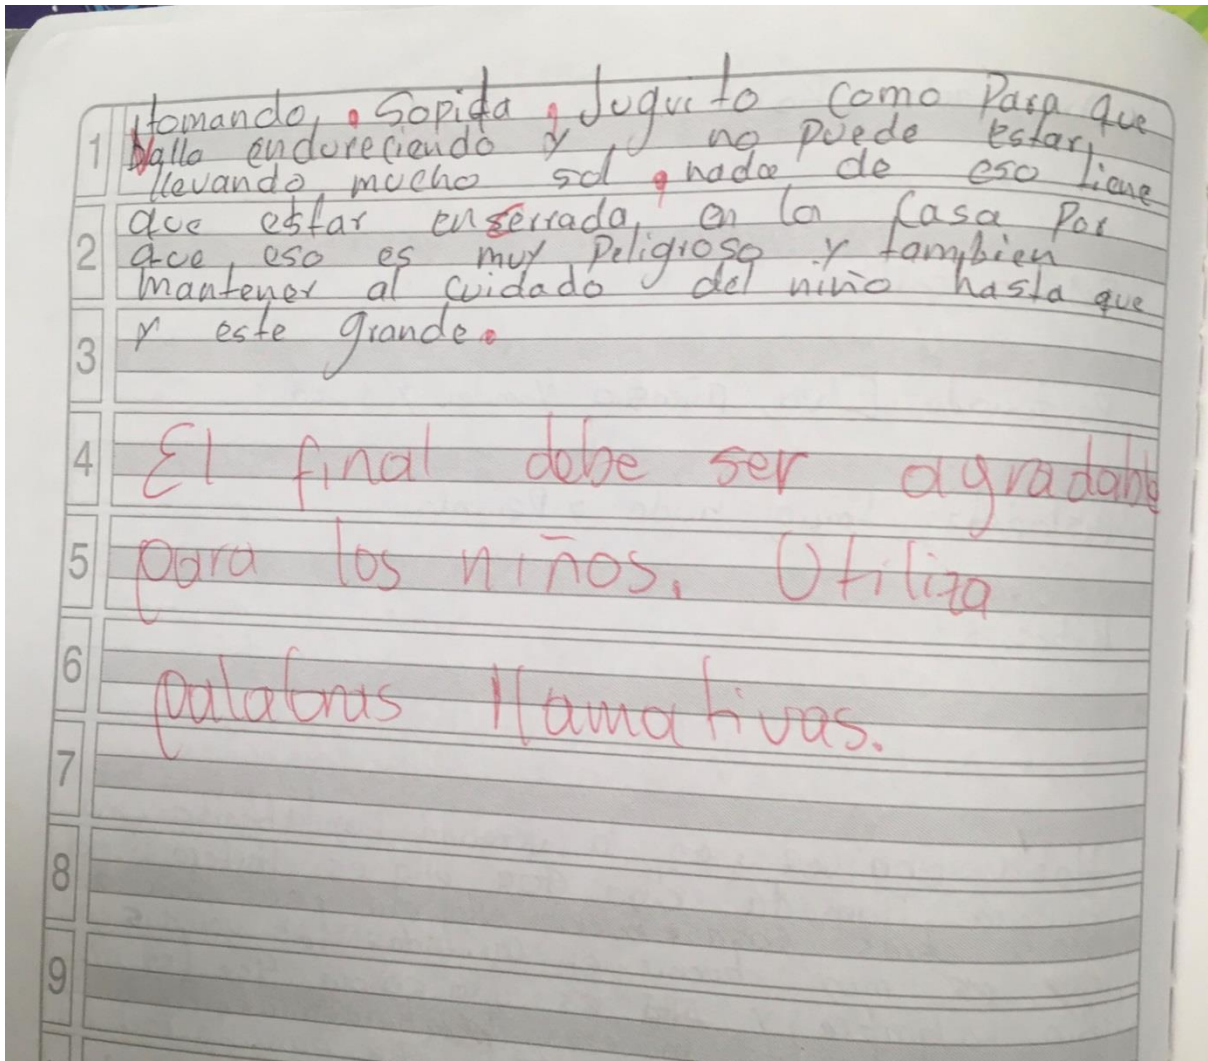 1 tomando, . Sopita , Juguito como Para que
Valla endureciendo y, no puede estar,
llevando mucho sol , nada de eso tiene
2 que estar enserrada, en la Casa Por
que, eso es muy Peligroso y tambien
mantener al cuidado del niño hasta que
3 y este grande.
4 El final debe ser agradable
5 para los niños. Utiliza
6 palabras llamativas.
7
8
9